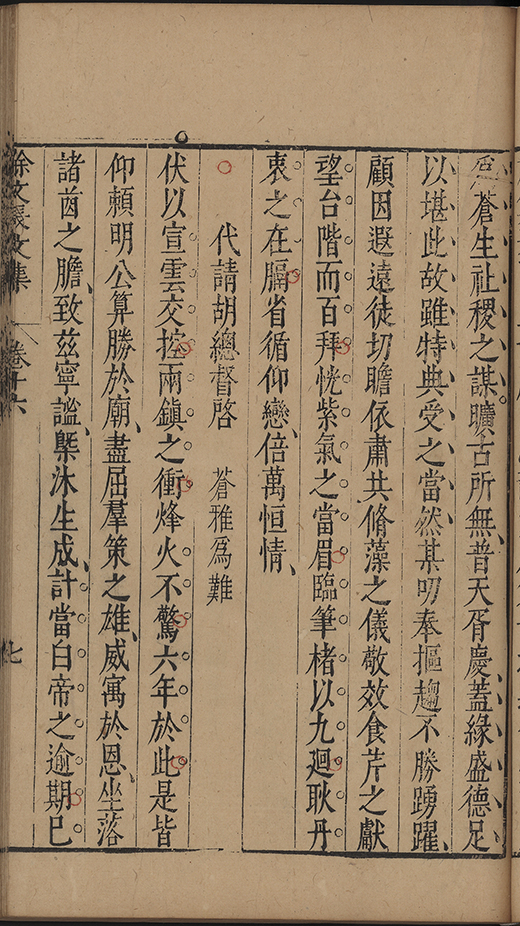 爲蒼生社稷之謀曠古所無普天胥慶蓋緣盛德足
以堪此故雖特典受之當然某叨奉摳趨不勝踴躍
顧因遐遠徒切瞻依肅共脩藻之儀敬效食芹之獻
望台階而百拜恍紫氣之當眉臨筆楮以九廻耿丹
衷之在膈省循仰戀倍萬恒情
代請胡總督啓 蒼雅爲難
伏以宣雲交控兩鎮之衝烽火不驚六年於此是皆
仰賴明公算勝於廟盡屈羣策之雄威寓於恩坐落
諸酋之膽致兹寧謐槩沐生成計當白帝之逾期巳
徐文長文集 卷十六 七